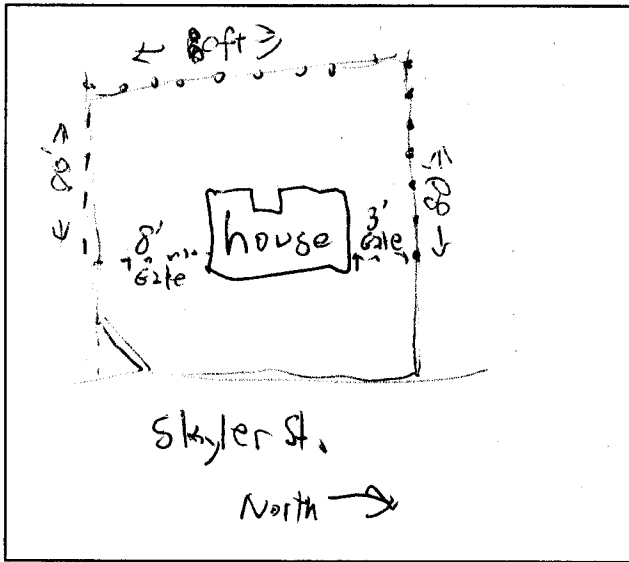 ← 80ft →
80'
80'
8'
Gate
house
3'
Gate
Skyler St.
North →